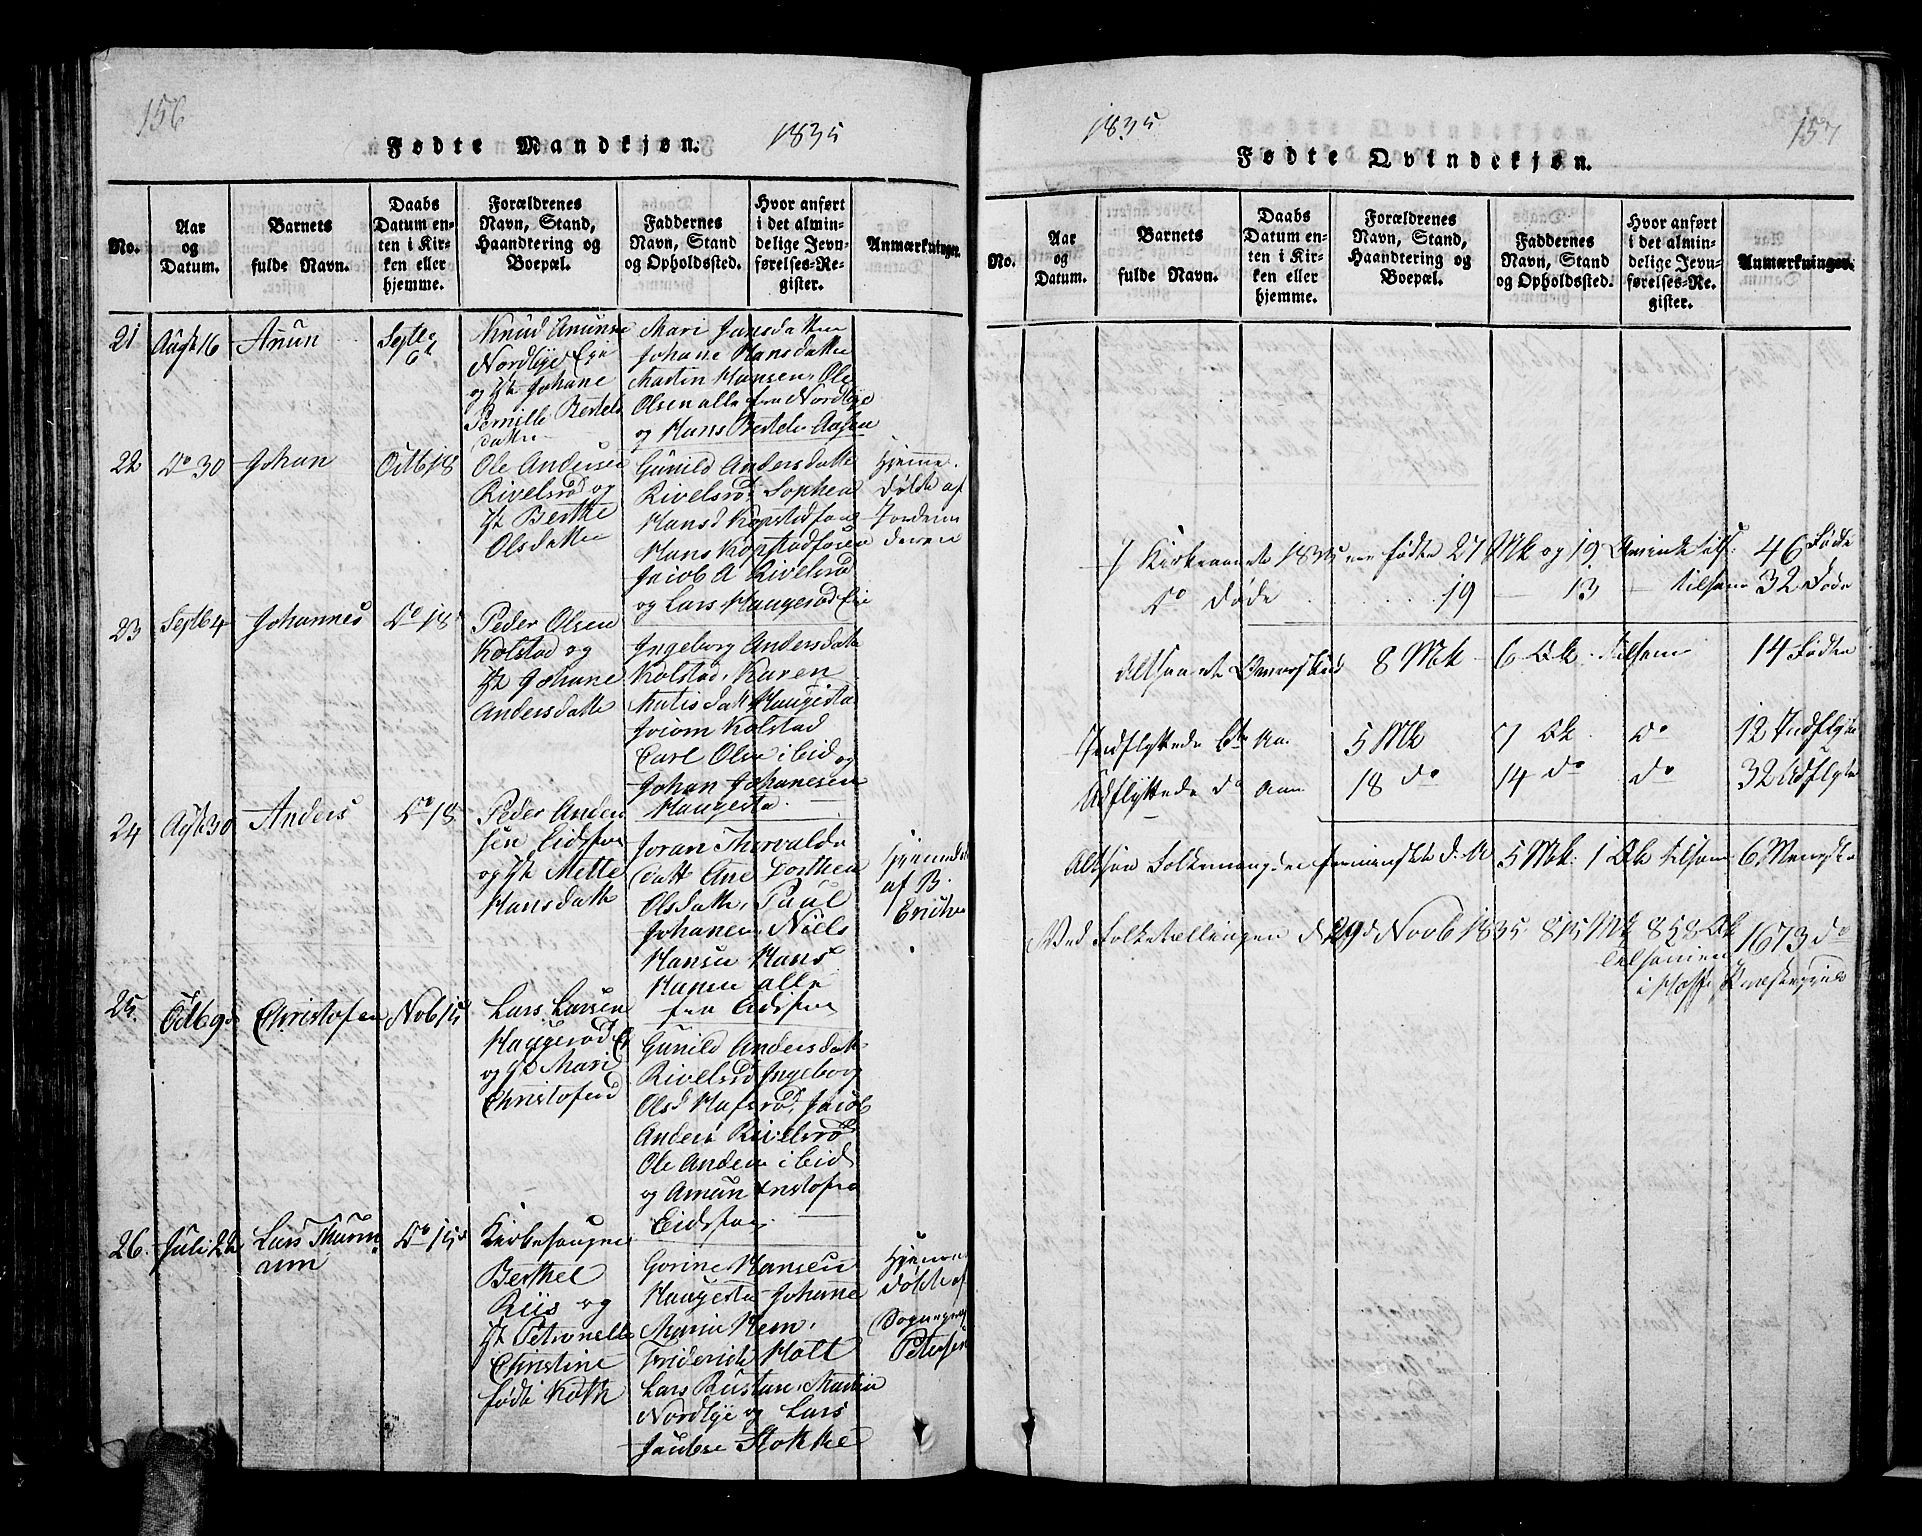 156
Fødte Mandkjøn.
1835
No.
Aar og Datum.
Barnets fulde Navn.
Daabs Datum enten i Kirken eller hjemme.
Forældrenes Navn, Stand, Haandtering og Boepæl.
Faddernes Navn, Stand og Opholdssted.
Hvor anført i det almindelige Jevnførelses-Register.
Anmærkninger.
21
Augt 16
Anun
Septb 6t
Knud Anuns
Nordbye Eje
og H Johane
Pernille Bertels
datter
Mari Jansdatter
Johane Hansdatter
Martin Hansen, Ole
Olsen alle fra Nordbye
og Hans Bertels Aasen
22
Do 30
Johan
Octb 18
Ole Andersen
Rivelsrød og
H Berthe
Olsdatter
Gunild Andersdatter
Rivelsrød, Sophea
Hansd Kopstadfos
Hans Kopstadfosen
Jacob A Rivelsrød
og Lars Haugerød Eie
Hjemme
døbt af
Jordemo
deren
23
Septb 4
Johannes
Do 18
Peder Olsen
Kolstad og
H Johane
Andersdatter
Ingeborg Andersdatter
Kolstad, Karen
Matisdatt Haugesta
Joiom Kolstad
Carl Olsen i Eid og
Johan Johanesen
Haugesta.
24
Augt 30
Anders
Do 18
Peder Ander
sen Eidsfos
og H Mette
Hansdatter
Joran Thorvalds
datt Ane Dorthea
Olsdatter, Paul
Johanen, Niels
Hansen Hans
Hansen alle
fra Eidsfos
Hjemmedøbt
af B.
Erichsen
25.
Octb 9
Christofer
Nob 15
Lars Larsen
Haugerød E
og H Mari
Christofersd
Gunild Andersdatt
Rivelsrød Ingeborg
Olsd Hafsrød, Jacob
Anders Rivelsrød
Ole Anders i Eid
og Amun Kristofers
Eidsfos
26.
Juli 22
Lars Thurm
ann
Do 15
Kirkesanger
Berthel
Riis og
H Petronelle
Christine
født Koth
Gorine Hansen
Haugesta Johanne
Maria Hem,
Friderich Holt
Lars Bustan, Martin
Nordbye og Lars
Jacobsen Stokke
Hjemme
døbt af
Sogneprest
Petersen
1835
157
Fødte Qvindekjøn.
No.
Aar og Datum.
Barnets fulde Navn.
Daabs Datum enten i Kirken eller hjemme.
Forældrenes Navn, Stand, Haandtering og Boepæl.
Faddernes Navn, Stand og Opholdssted.
Hvor anført i det almindelige Jevnførelses-Register.
Anmærkninger.
I Kirkeaaret 1835 ere fødte 27 Mk og 19 Qvindek tils: 46 Fødte
Do Døde 19 — 13 — tilsam 32 Døde
altsaa et Overskud 8 Mk 6 Qk tilsam 14 Fødte
Indflyttede Do Aar 5 Mk 7 Qk Do 12 Indflyt
Udflyttede Do Aar 18 Do 14 Do Do 32 Udflyt
Altsaa Folkemængden formindsket d. A 5 Mk: 1 Qk tilsam 6 Mennsker
Ved Folketællingen d 29d Novb 1835 815 Mk 858 Qk 1673 Do
tilsammen
i Præstegjeld